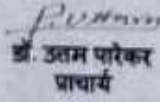 डॉ. उत्तम पारेकर
प्राचार्य